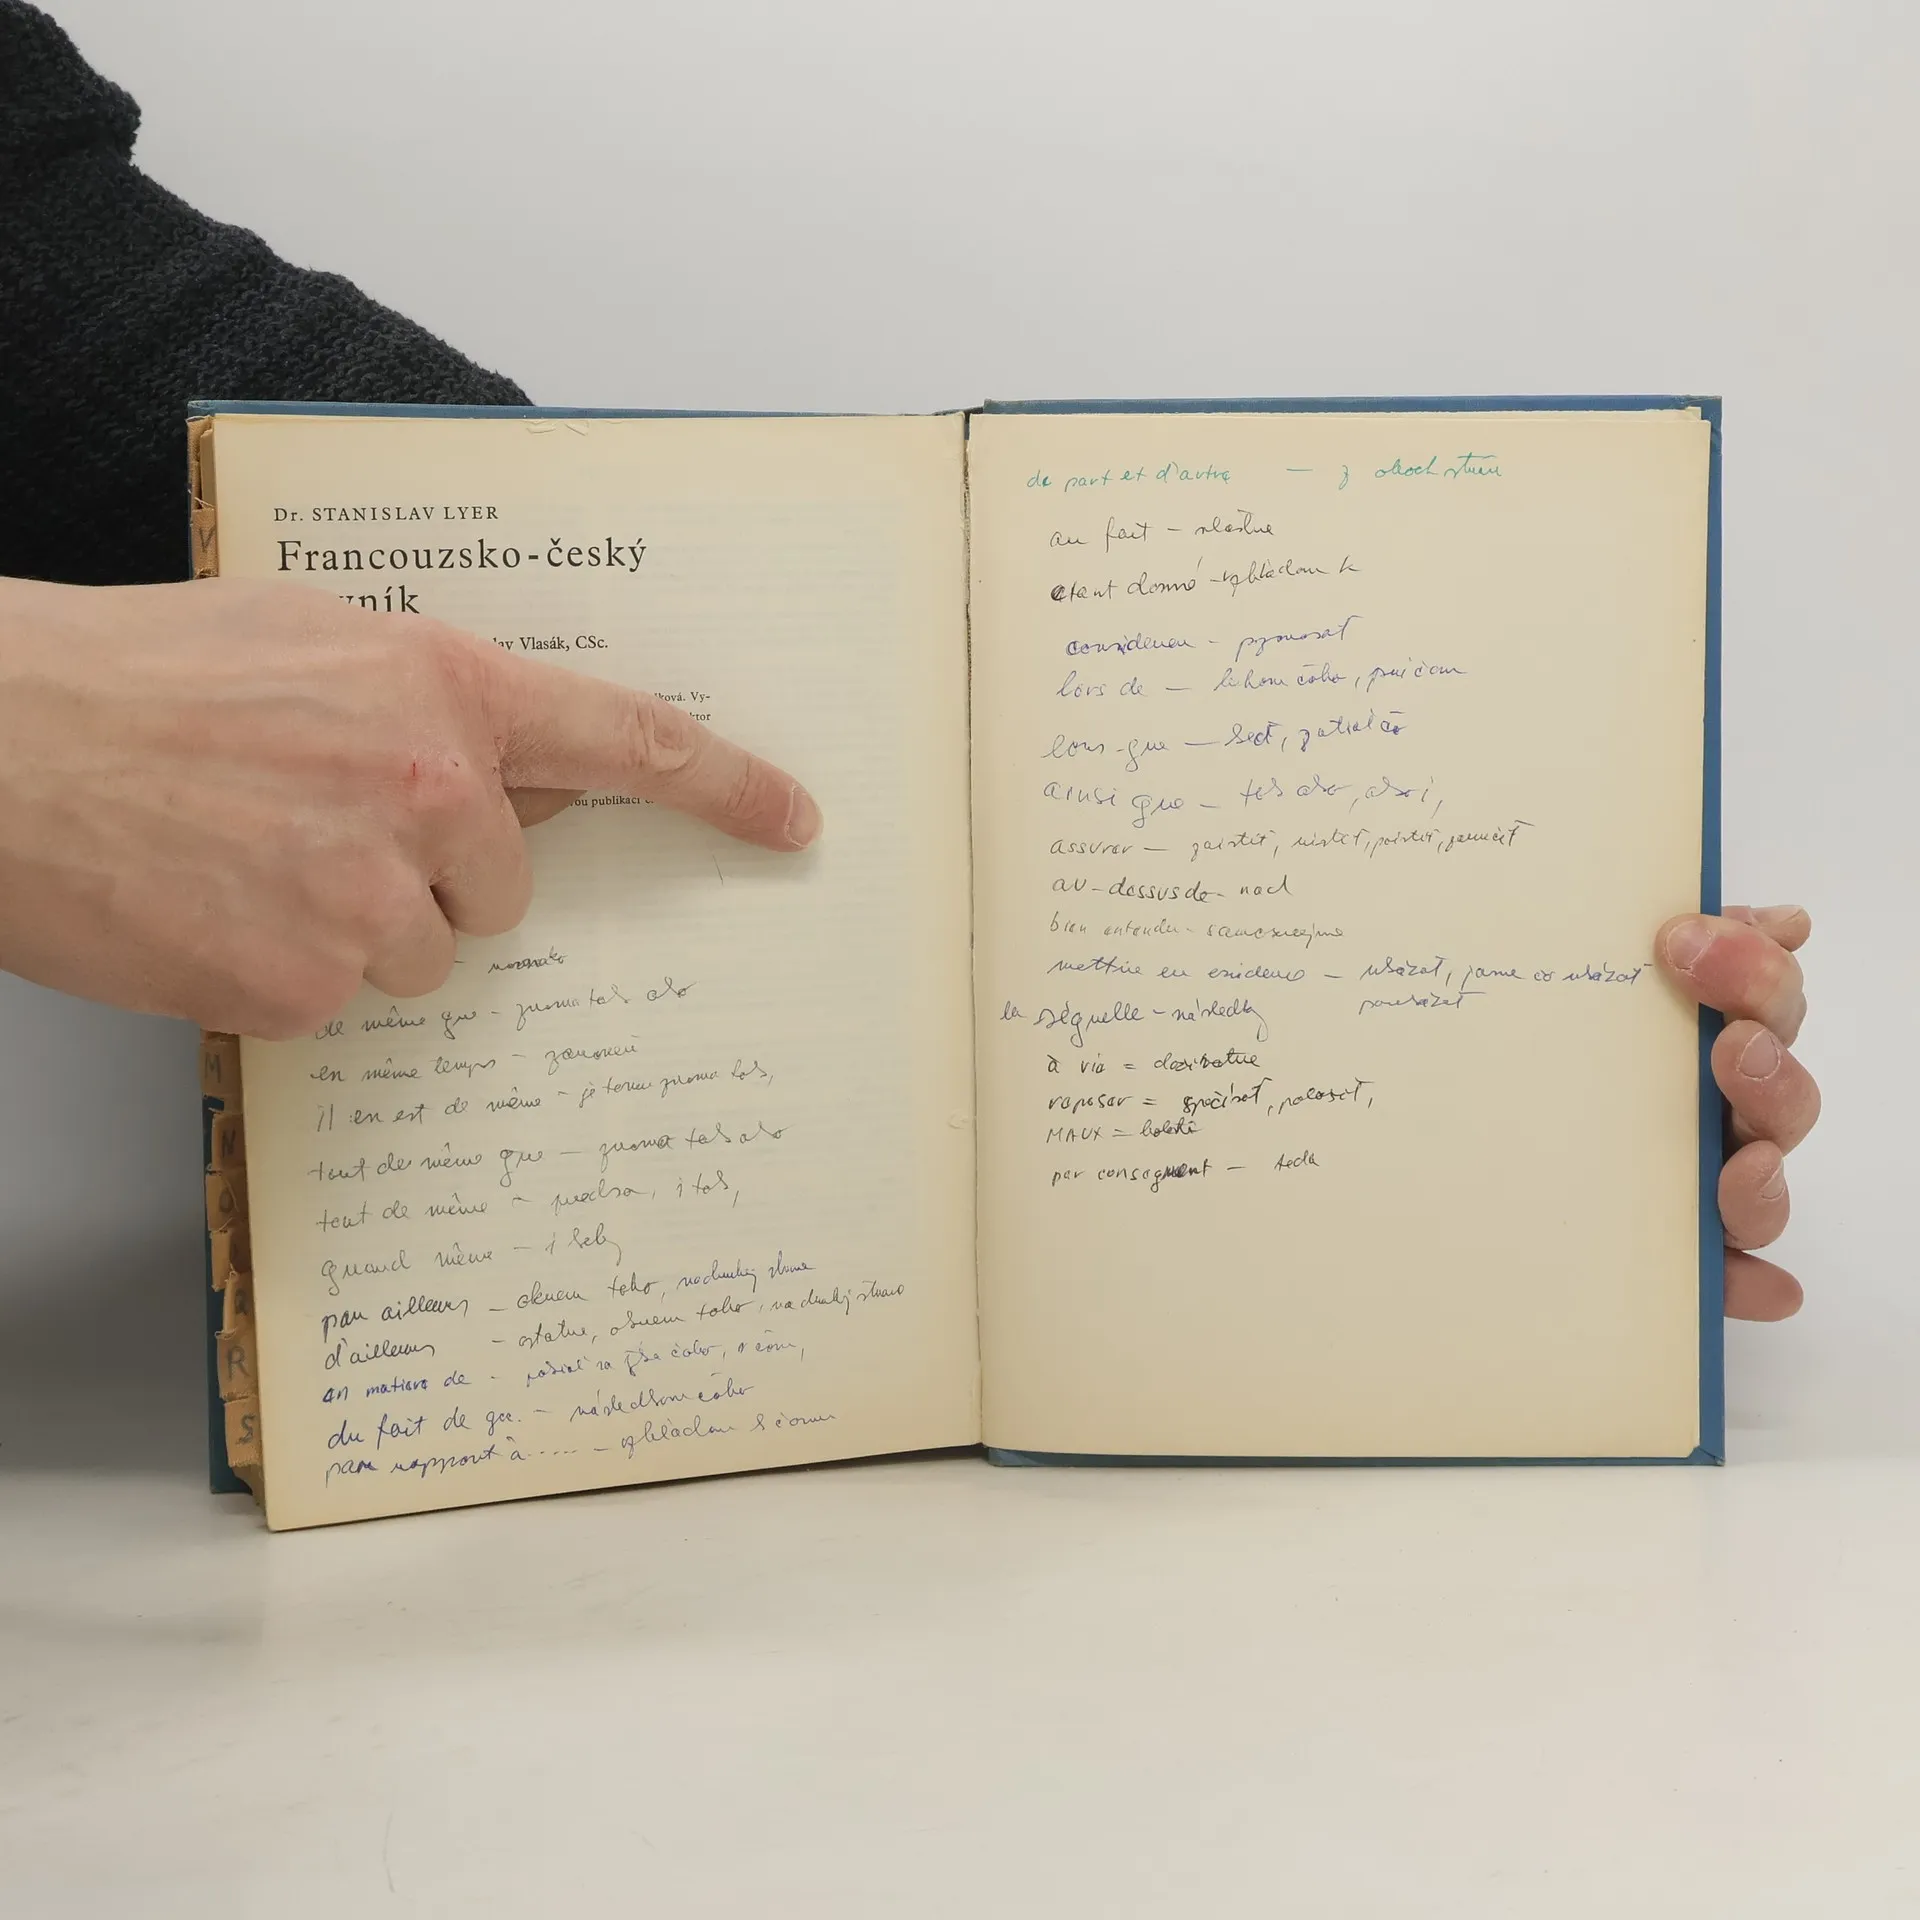 Dr. STANISLAV LYER
Francouzsko-český
vník
lav Vlasák, CSc.
ková. Vy-
ktor
vou publikací
de même que - rovnako tak ako
en même temps - zároveň
Il en est de même - je tomu rovnako tak,
tout de même que - rovnako tak ako
tout de même - predsa, i tak,
quand même - i keby
par ailleurs - okrem toho, na druhej strane
d'ailleurs - ostatne, okrem toho, na druhej strane
en matière de - čoho, v čom,
du fait de qc. - následkom čoho
par rapport à ..... - vzhľadom k čomu
de part et d'autre - z oboch strán
au fait - vlastne
étant donné - vzhľadom k
considérer - pozorovať
lors de - behom čoho, pričom
lors-que - keď, zatiaľ čo
ainsi que - tak ako, ako i,
assurer - zaistiť, uistiť, poistiť, zaručiť
au-dessus de - nad
bien entendu - samozrejme
mettre en évidence - ukázať, jasne čo ukázať
poukázať
la séquelle - následky
à vie = doživotne
reposer = spočívať, položiť,
MAUX = bolesti
par conséquent - teda
M
N
O
Q
R
S